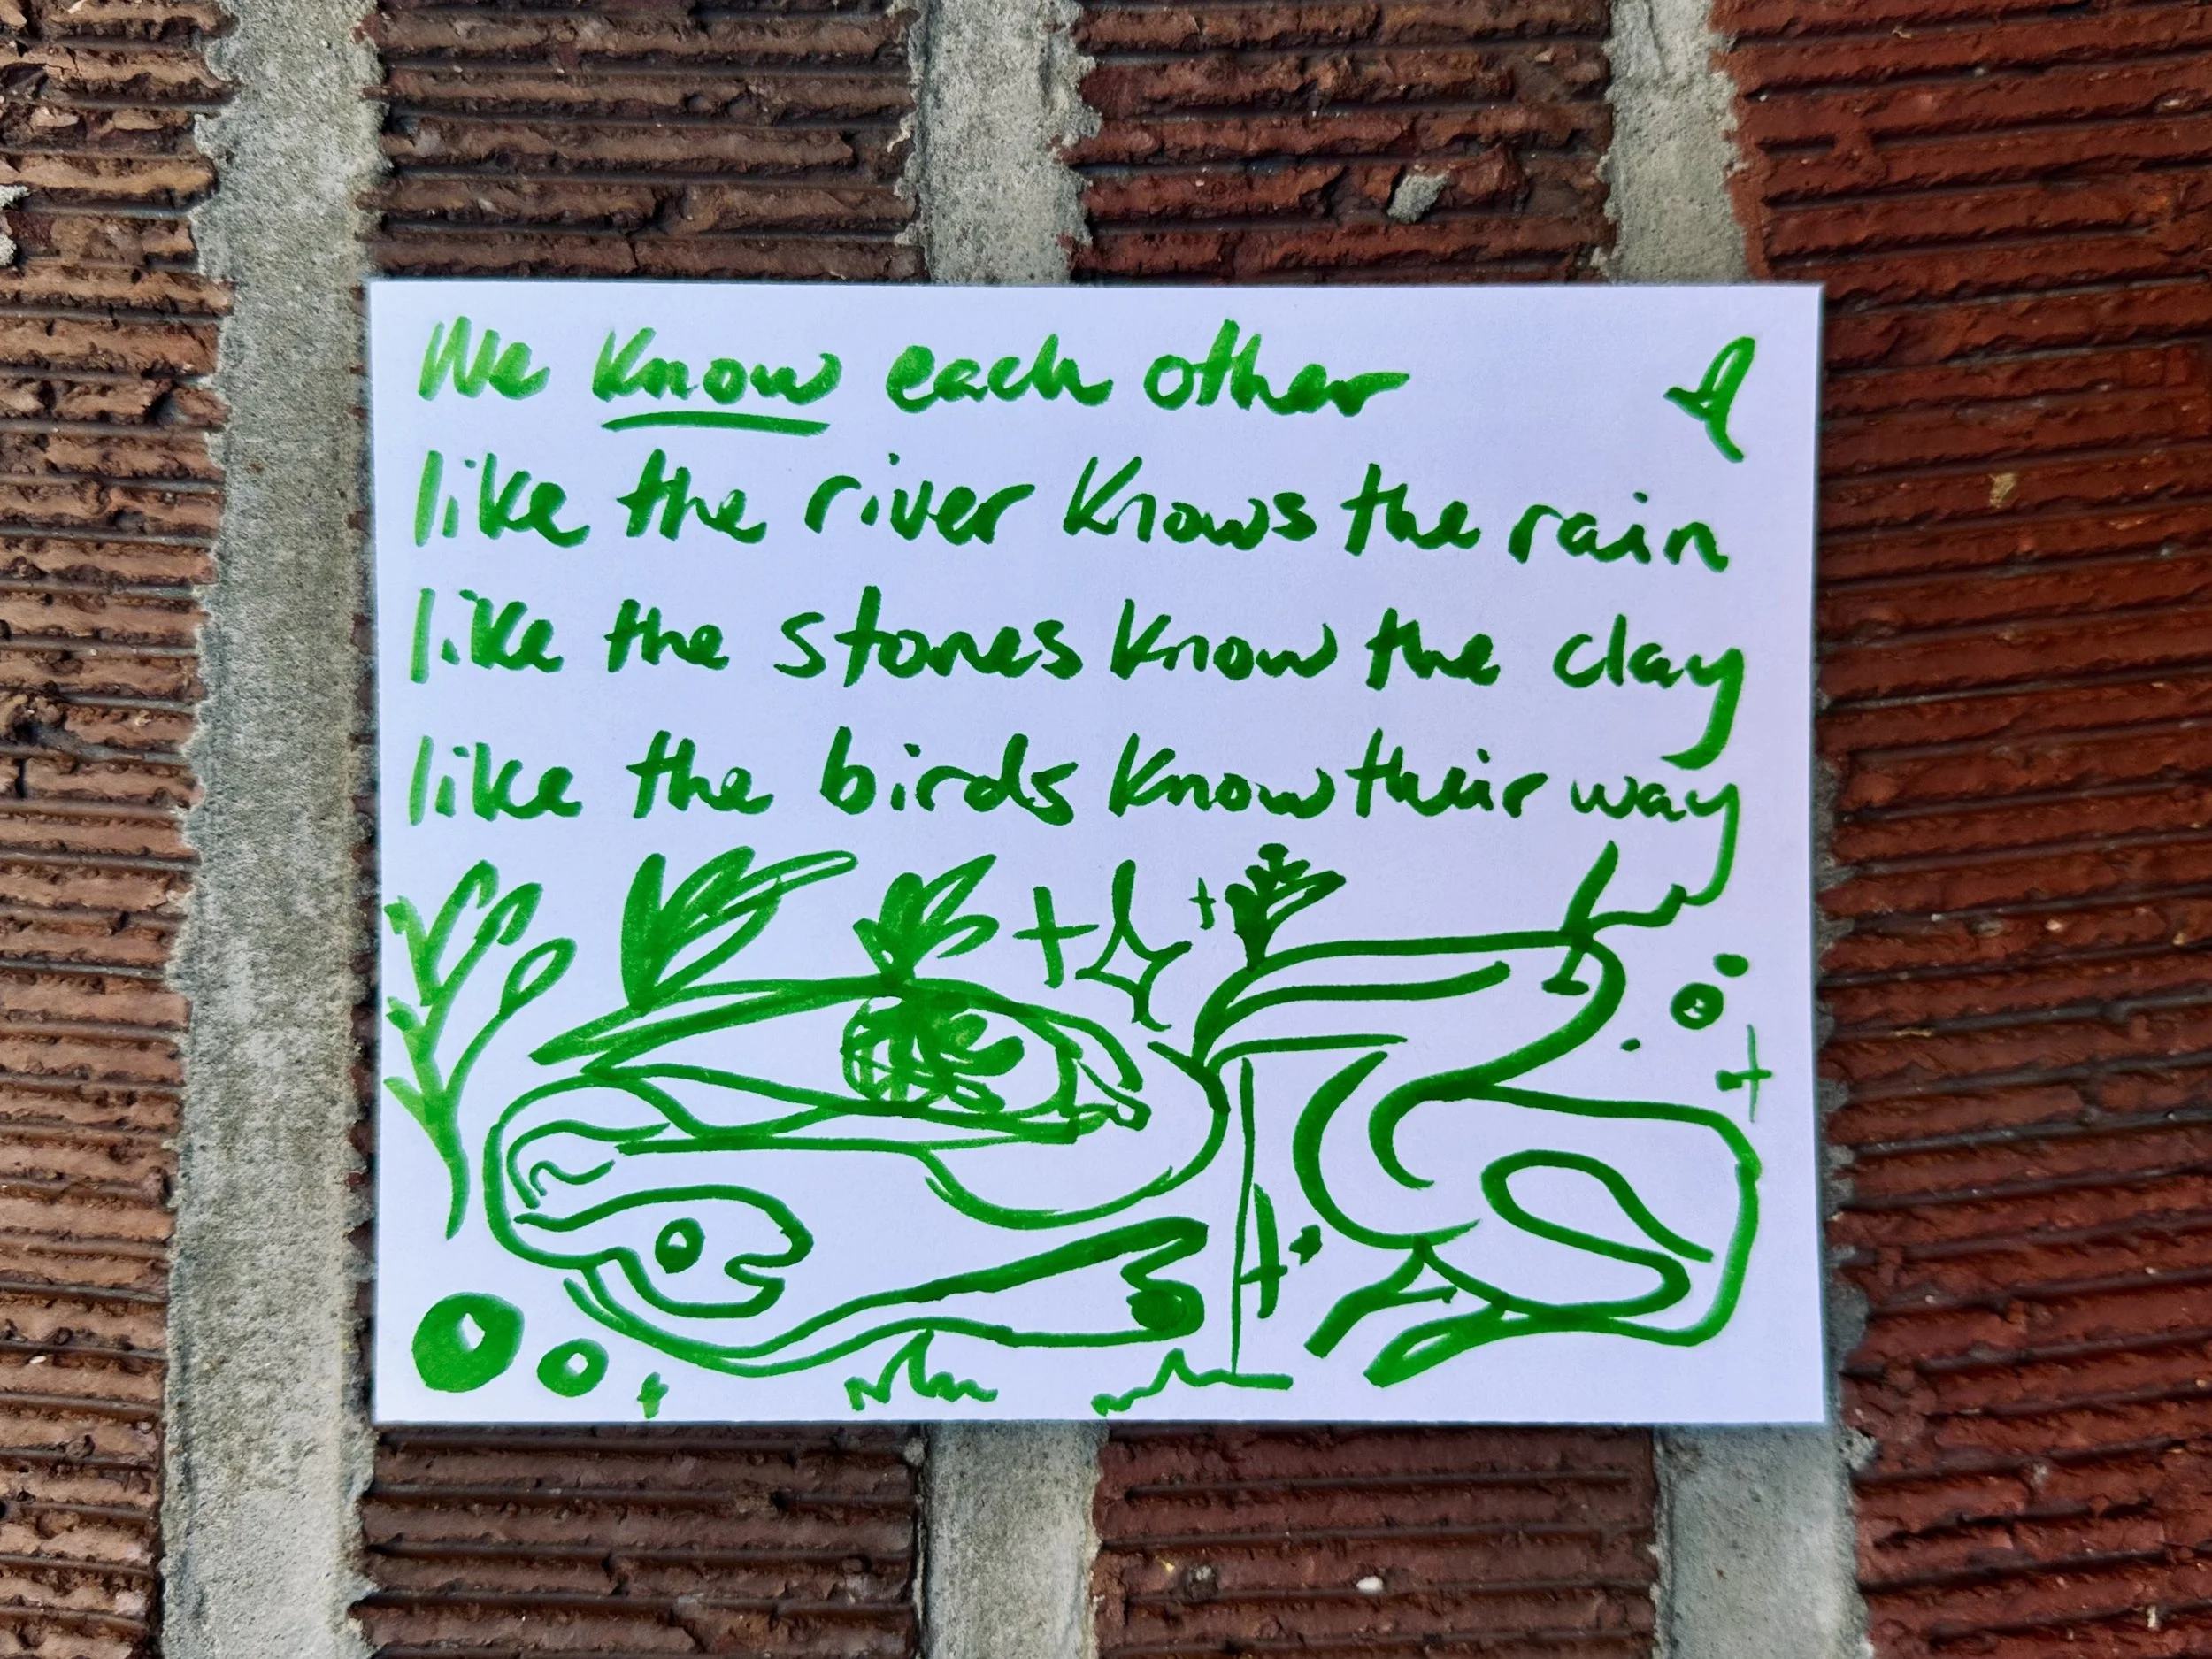 We know each other
like the river knows the rain
like the stones know the clay
like the birds know their way